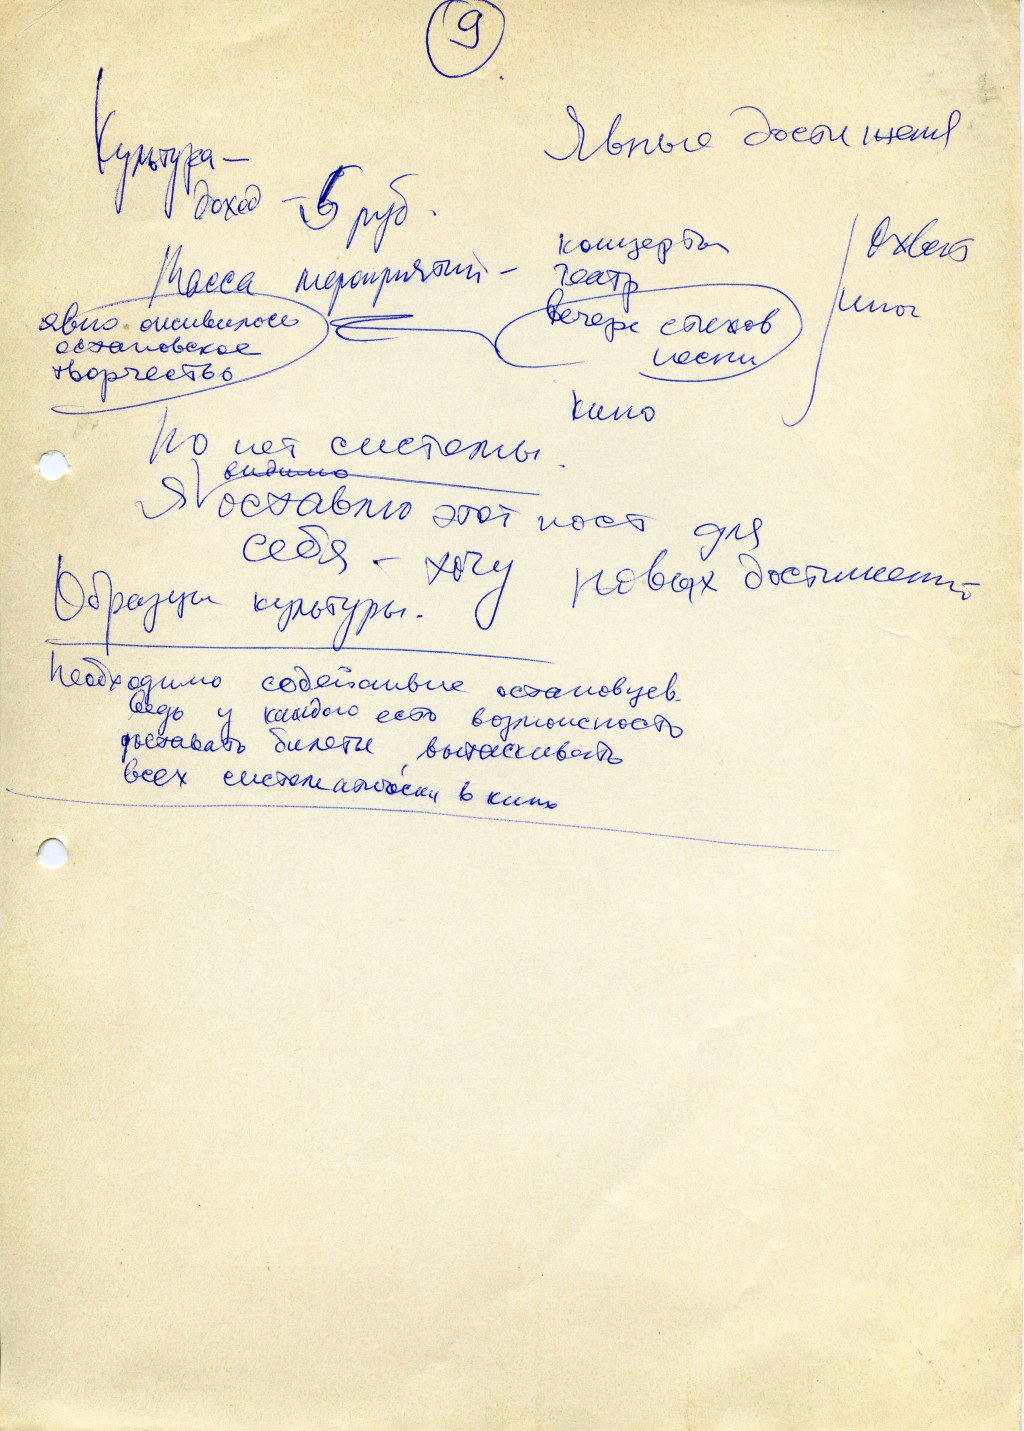 9
Культура –
Явные достижения
доход – 5 руб.
Масса мероприятий –
концерты
театр
вечера стихов
песни
кино
Охват
явно оживилось
остановское
творчество
Но нет системы.
видимо
Я оставлю этот пост для
себя – хочу новых достижений
Образцы культуры.
Необходимо содействие остановцев
Ведь у каждого есть возможность
доставать билеты, вытаскивать
всех систематически в кино